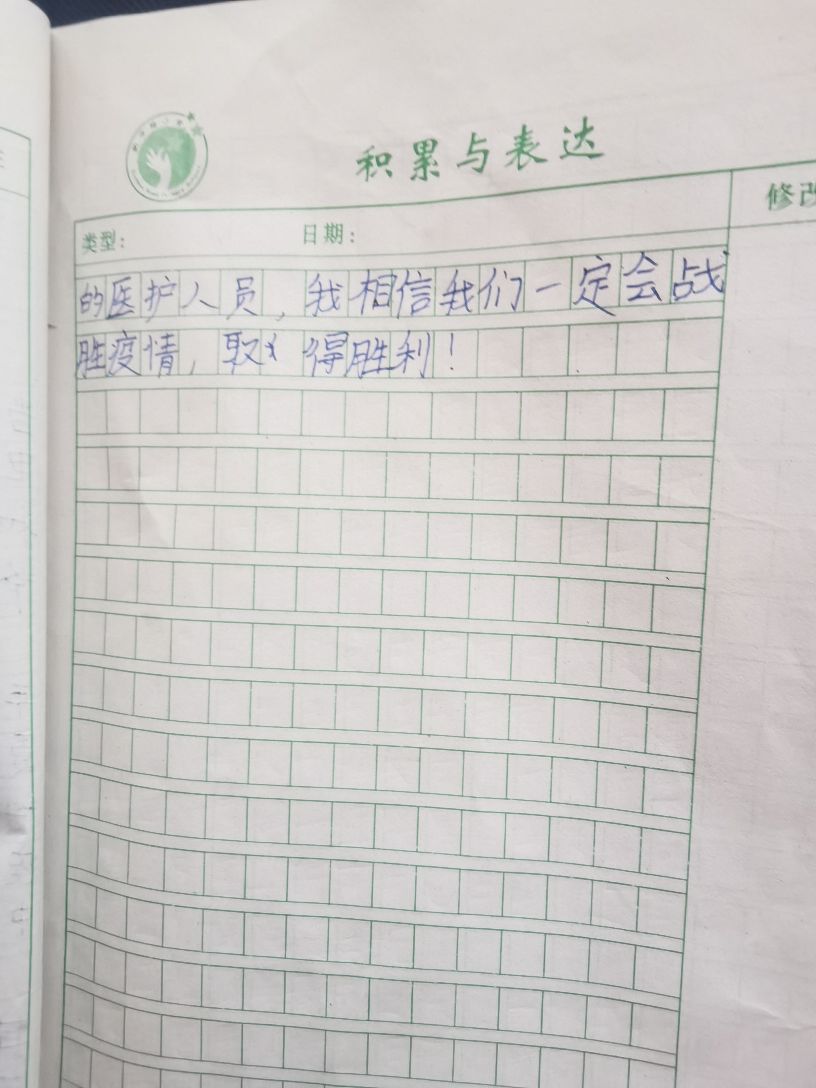 积累与表达
修改
类型：
日期：
的医护人员，我相信我们一定会战
胜疫情，取得胜利！